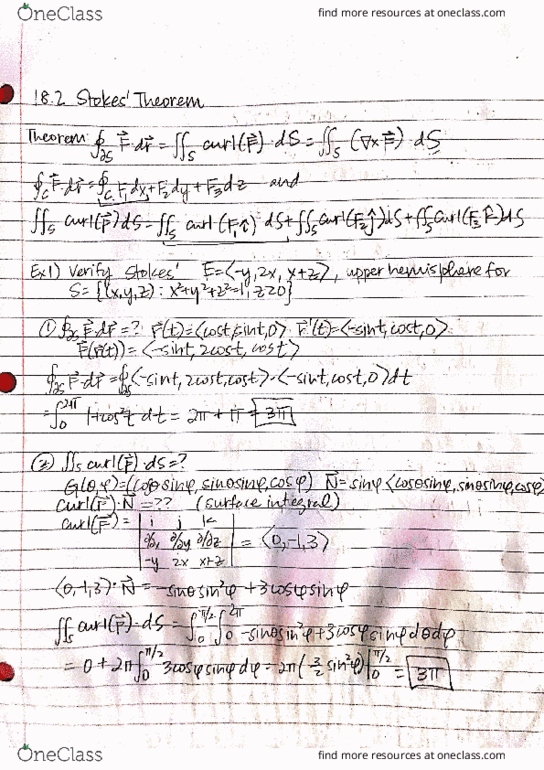 OneClass
find more resources at oneclass.com
18.2 Stokes' Theorem
Theorem: ∮∂S F⃗·dr⃗ = ∬S curl(F⃗)·dS = ∬S (∇×F⃗)·dS
∮C F⃗·dr⃗ = ∮C F₁dx + F₂dy + F₃dz and
∬S curl(F⃗)dS = ∬S curl(F₁î)·dS + ∬S curl(F₂ĵ)dS + ∬S curl(F₃k̂)dS
Ex1) Verify Stokes' F = ⟨-y, 2x, x+z⟩, upper hemisphere for
S = {(x,y,z) : x²+y²+z²=1, z≥0}
① ∮∂S F⃗·dr⃗ = ? r⃗(t) = ⟨cost, sint, 0⟩ r⃗'(t) = ⟨-sint, cost, 0⟩
F⃗(r⃗(t)) = ⟨-sint, 2cost, cost⟩
∮∂S F⃗·dr⃗ = ∮∂S ⟨-sint, 2cost, cost⟩·⟨-sint, cost, 0⟩dt
= ∫₀^2π 1+cos²t dt = 2π + π = 3π
② ∬S curl(F⃗) dS = ?
G(θ,φ) = (cosθsinφ, sinθsinφ, cosφ) N⃗ = sinφ⟨cosθsinφ, sinθsinφ, cosφ⟩
curl(F⃗)·N⃗ = ?? (surface integral)
curl(F⃗) = | i j k |
| ∂/∂x ∂/∂y ∂/∂z | = ⟨0, -1, 3⟩
| -y 2x x+z |
⟨0, -1, 3⟩·N⃗ = -sinθsin²φ + 3cosφsinφ
∬S curl(F⃗)·dS = ∫₀^π/2 ∫₀^2π -sinθsin²φ + 3cosφsinφ dθdφ
= 0 + 2π∫₀^π/2 3cosφsinφdφ = 2π(3/2 sin²φ)|₀^π/2 = 3π
OneClass
find more resources at oneclass.com